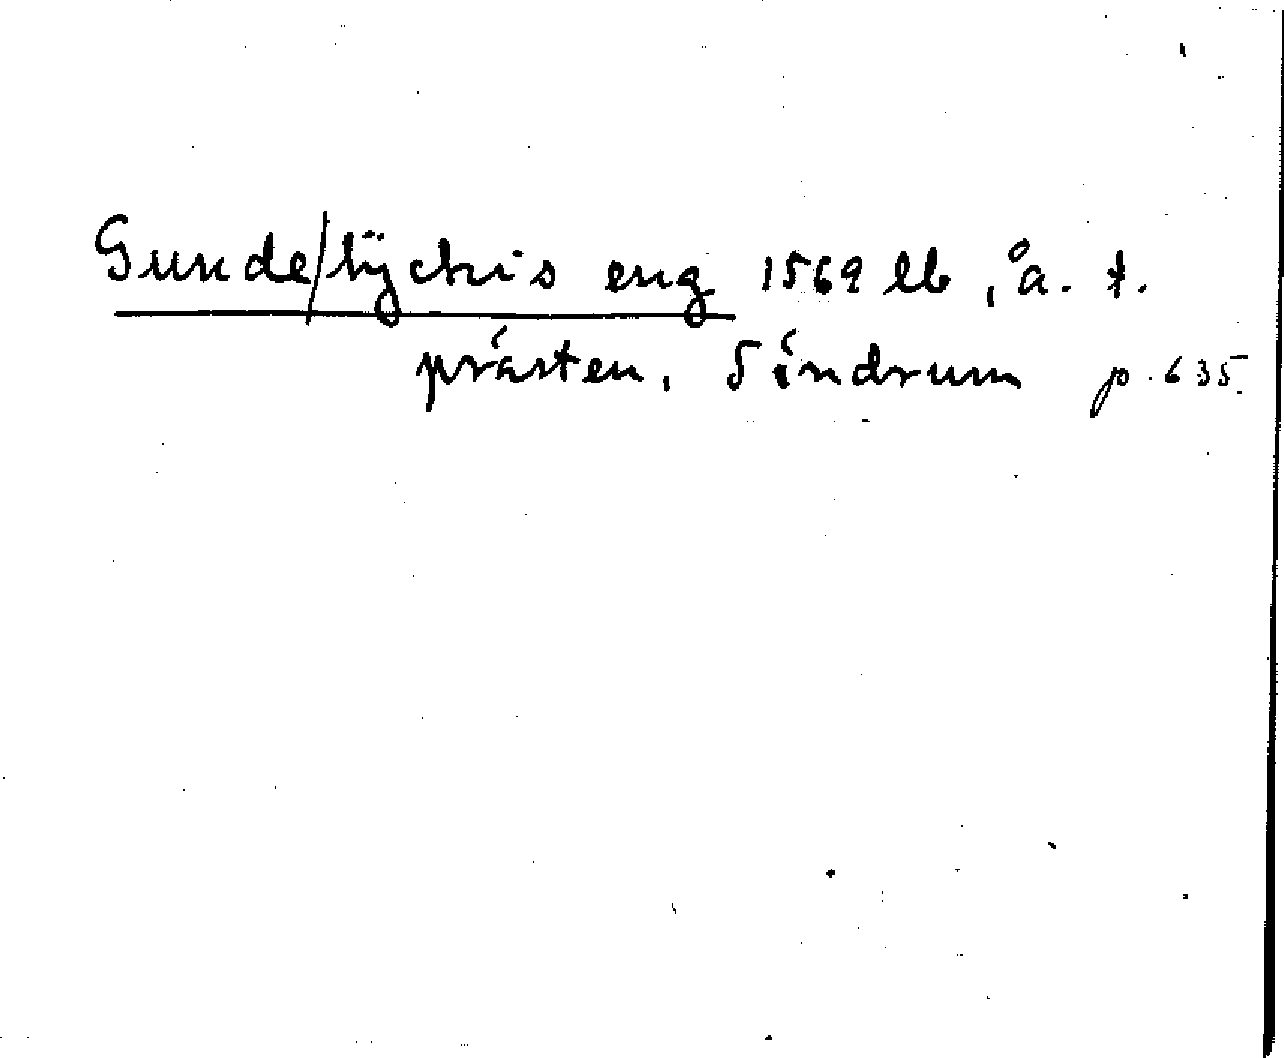 Gunde/tÿckis eng 1569 lb, å. t.
prästen, Söndrum p. 635.